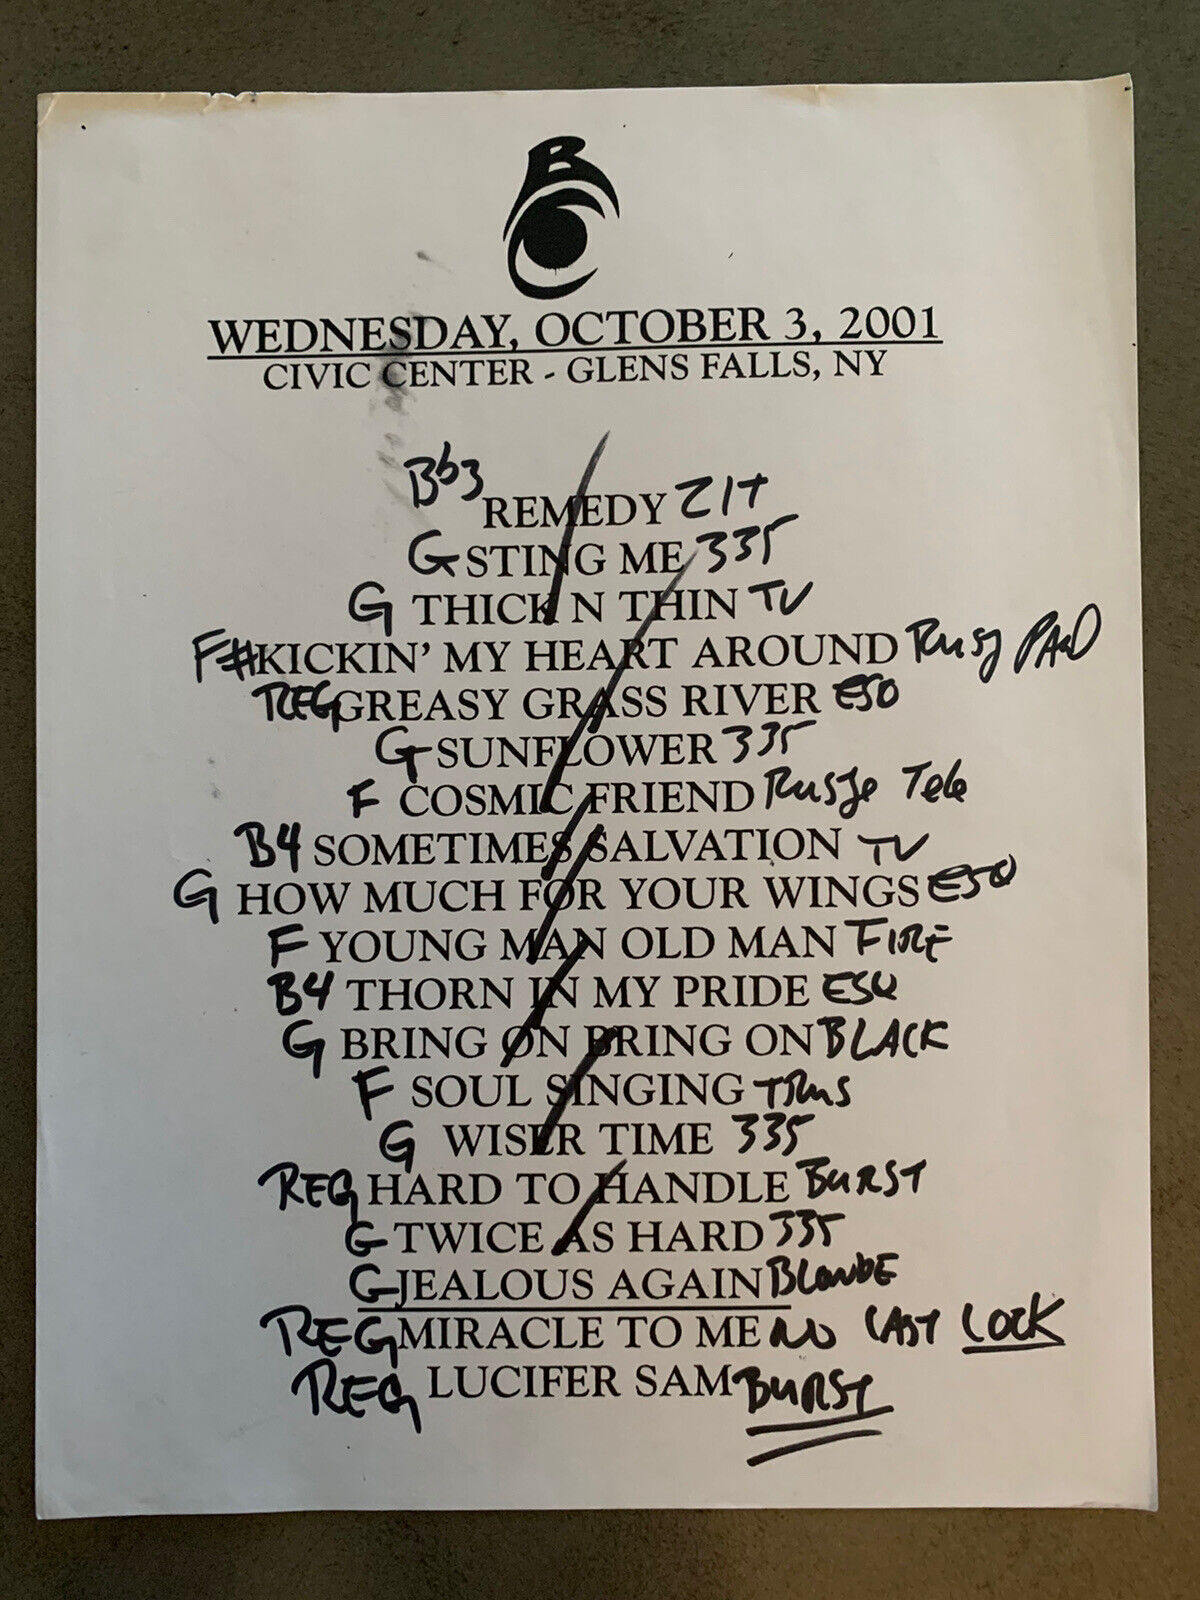 B C
WEDNESDAY, OCTOBER 3, 2001
CIVIC CENTER - GLENS FALLS, NY
Bb3 REMEDY
G STING ME 335
G THICK N THIN TV
F# KICKIN' MY HEART AROUND
REG GREASY GRASS RIVER
G SUNFLOWER 335
F COSMIC FRIEND Tele
B4 SOMETIMES SALVATION TV
G HOW MUCH FOR YOUR WINGS ESQ
F YOUNG MAN OLD MAN FIRE
B4 THORN IN MY PRIDE ESQ
G BRING ON BRING ON BLACK
F SOUL SINGING
G WISER TIME 335
REG HARD TO HANDLE BURST
G TWICE AS HARD 335
G JEALOUS AGAIN BLONDE
REG MIRACLE TO ME NO LAST LOCK
REG LUCIFER SAM BURST